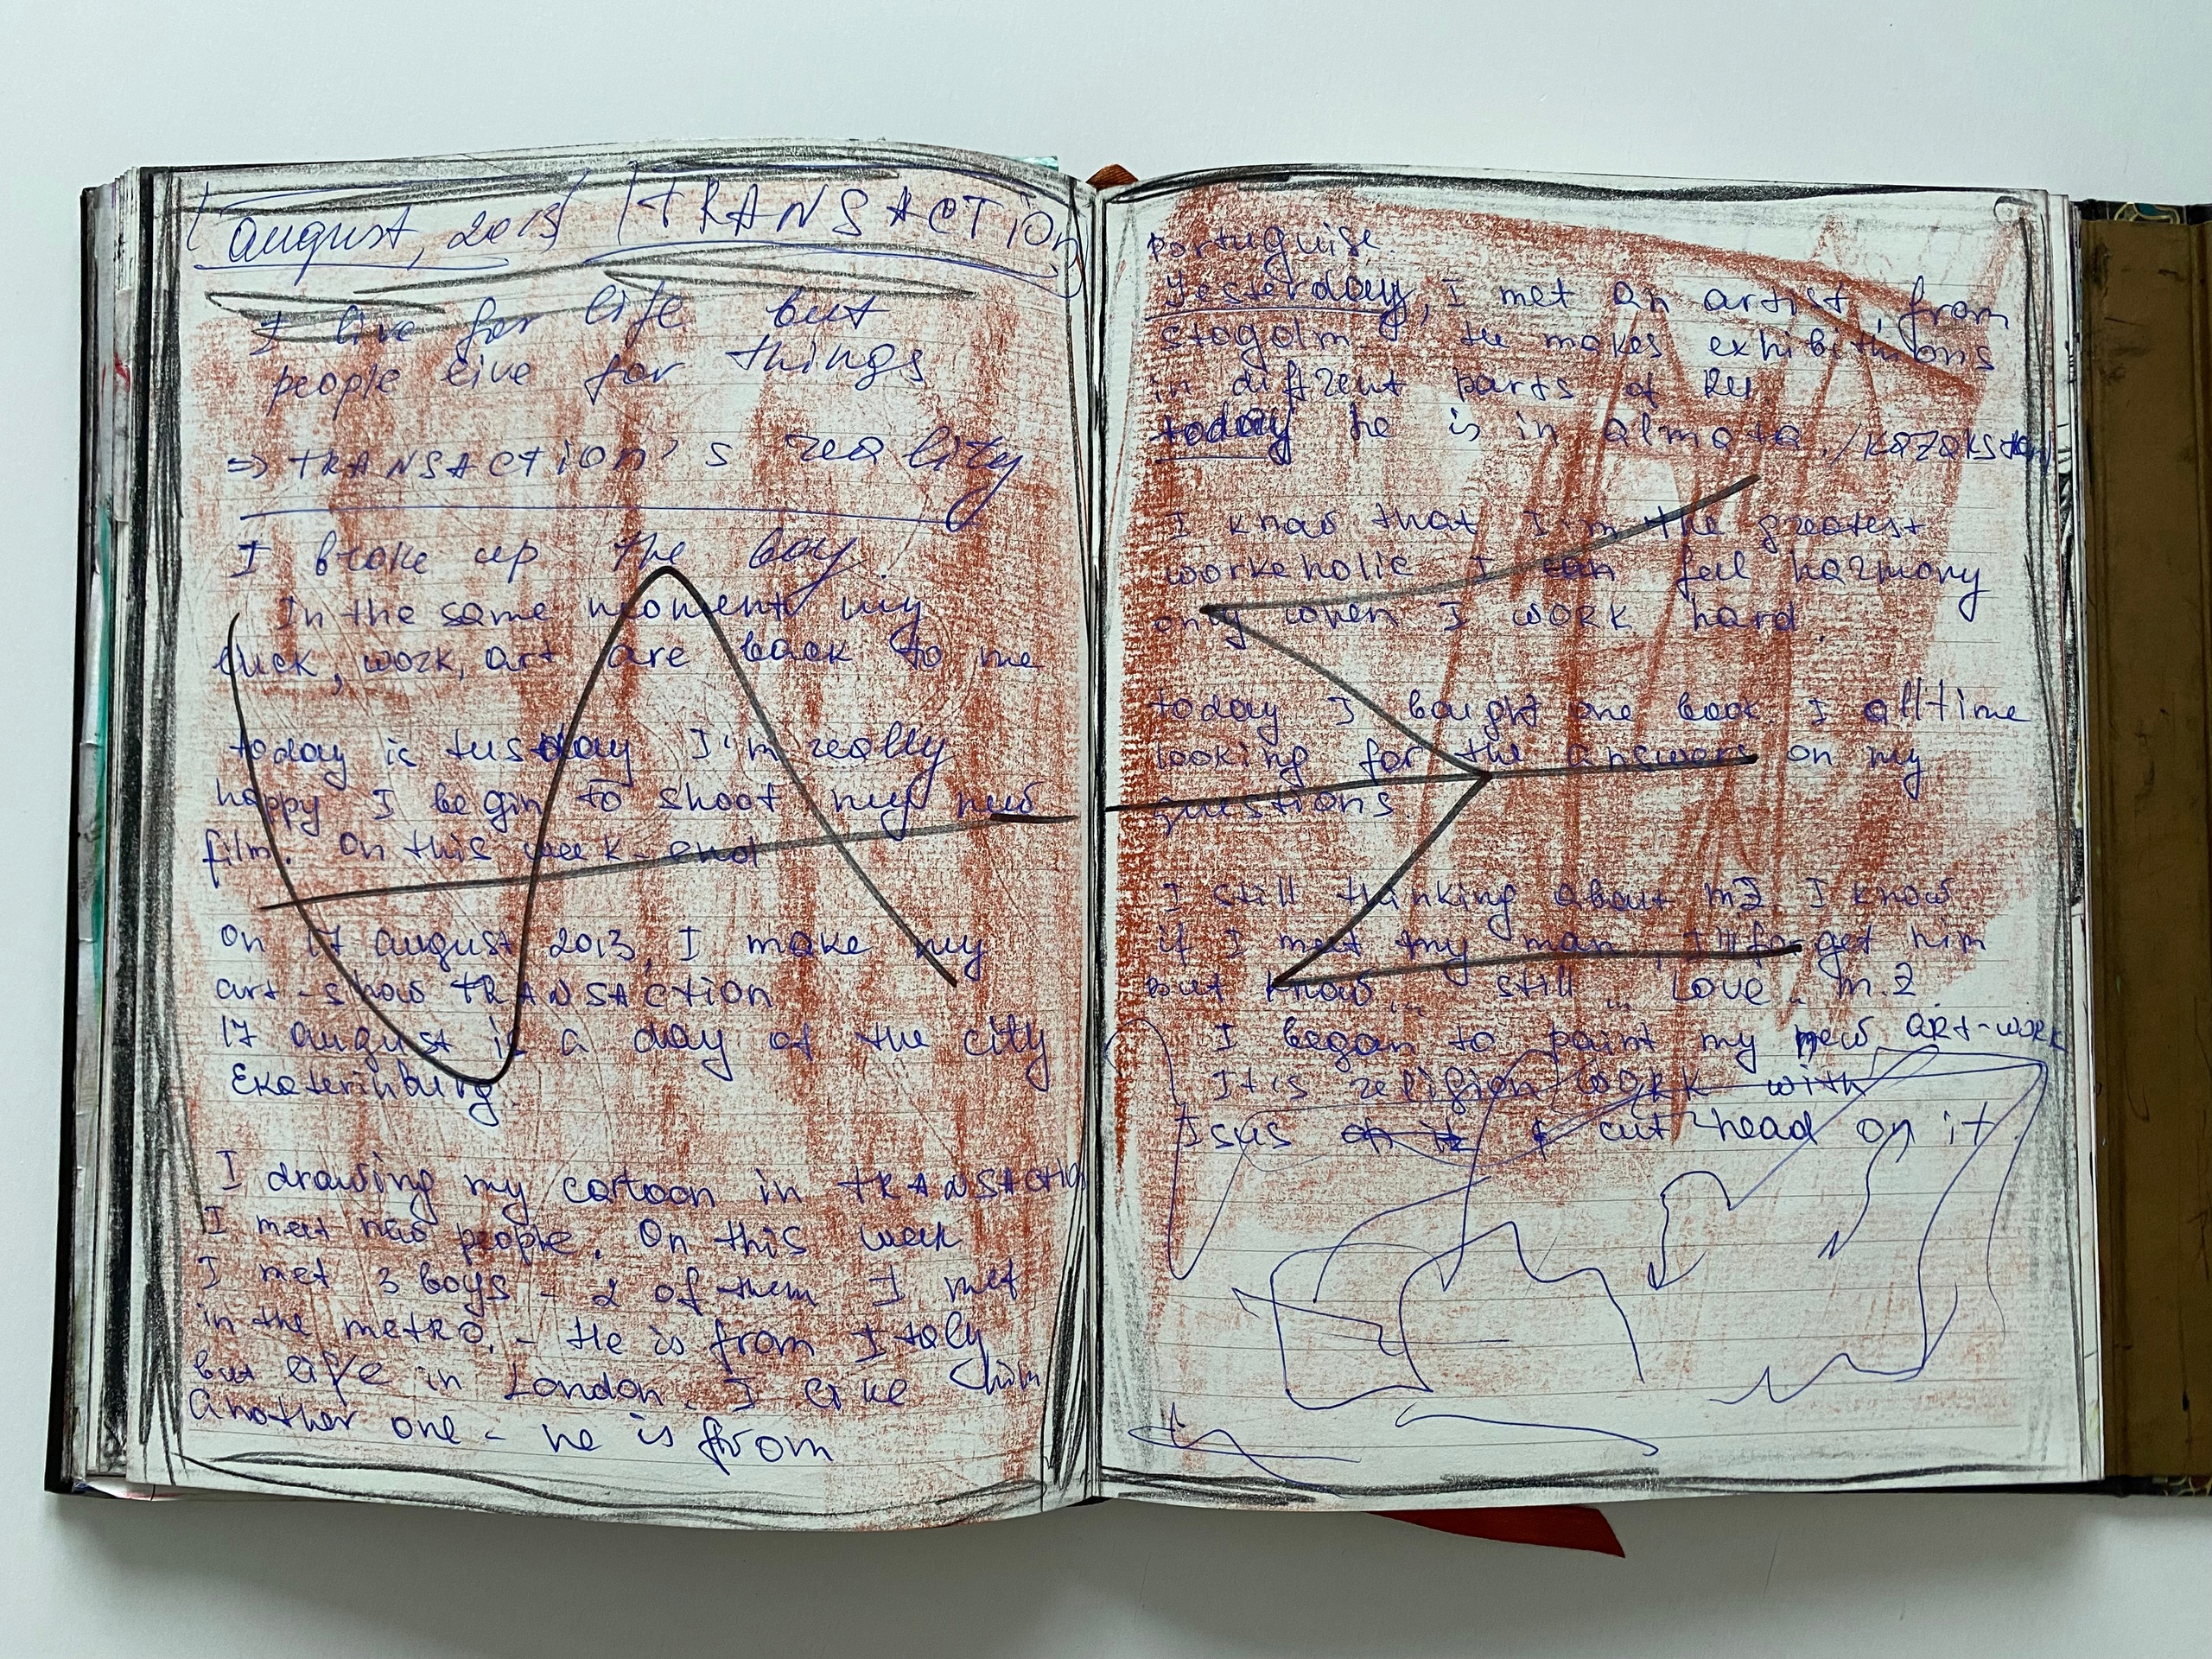 august, 2013 TRANSACTION
I live for life but
people live for things
=> TRANSACTION's reality
I broke up the boy.
In the same moment my
luck, work, art are back to me
today is tusday I'm really
happy I begin to shoot my new
film. On this week-end
On 17 august 2013, I make my
art-show TRANSACTION
17 august is a day of the city
Ekaterinburg.
I drawing my cartoon in TRANSACTIO
I meet new people. On this week
I met 3 boys - 2 of them I met
in the metRO. - He is from Italy
but life in London. I like him
Another one - he is from
portuguise.
Yesterday, I met an artist from
stogolm. He makes exhibithions
in diffrent parts of RU.
today he is in almata /KAZAKstan/
I know that I'm the greatest
workeholic I can feel harmony
only when I WORK hard.
today I bought one book. I alltime
looking for the answers on my
questions.
I still thinking about mZ I know
if I meet my man, I'll foget him
but know... still... Love.. m.Z.
I began to paint my new ART-WORK
It's religion work with
Isus on it & cut head on it.